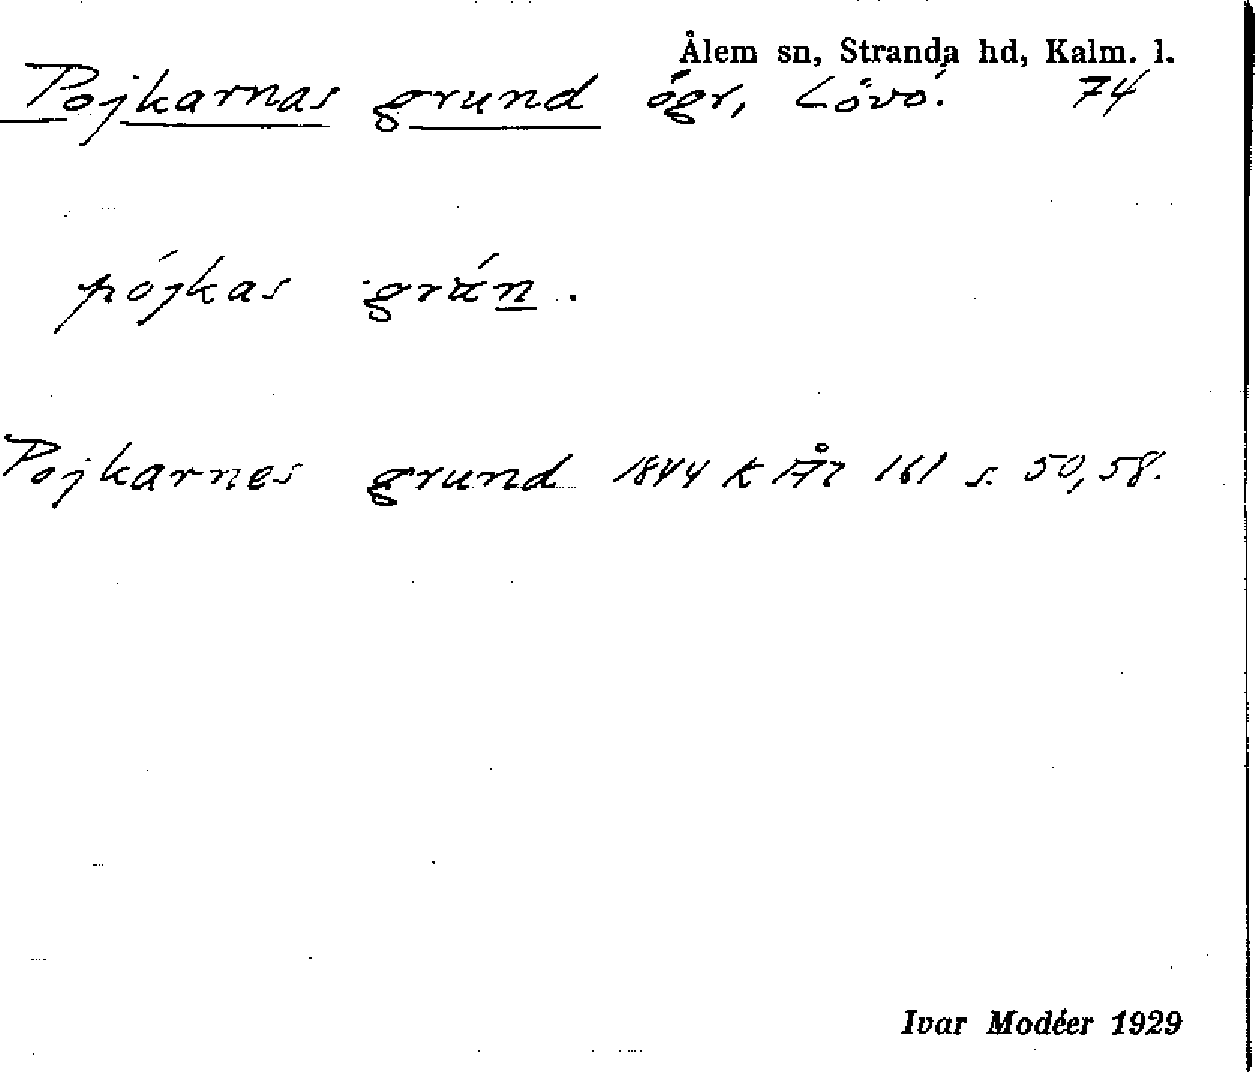 Ålem sn, Stranda hd, Kalm. l.
Pojkarnas grund ögr, Lövö. 74
pójkas grún.
Pojkarnes grund 1844 K Ål 161 s. 50, 58.
Ivar Modéer 1929